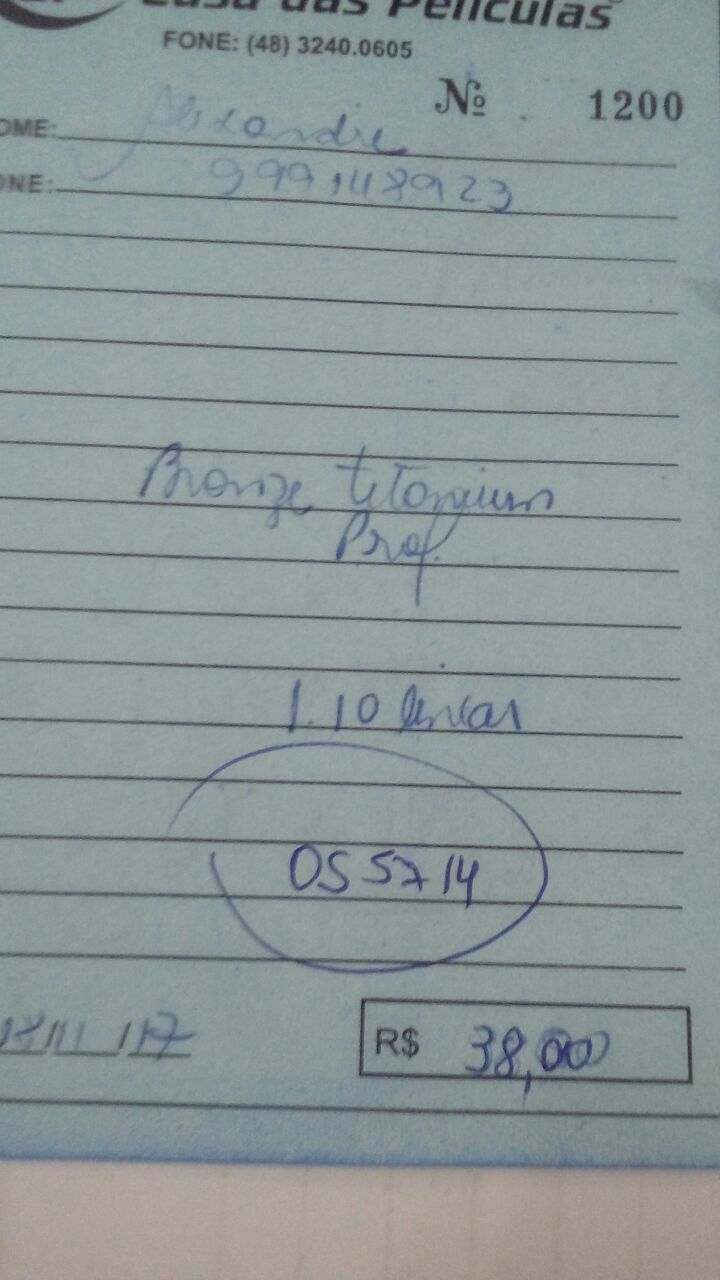 Casa das Películas
FONE: (48) 3240.0605
Nº 1200
OME: Alexandre
ONE: 999148923
Bronze titanium
Prof.
1.10 linear
OS 5714
18/11/17
R$ 38,00